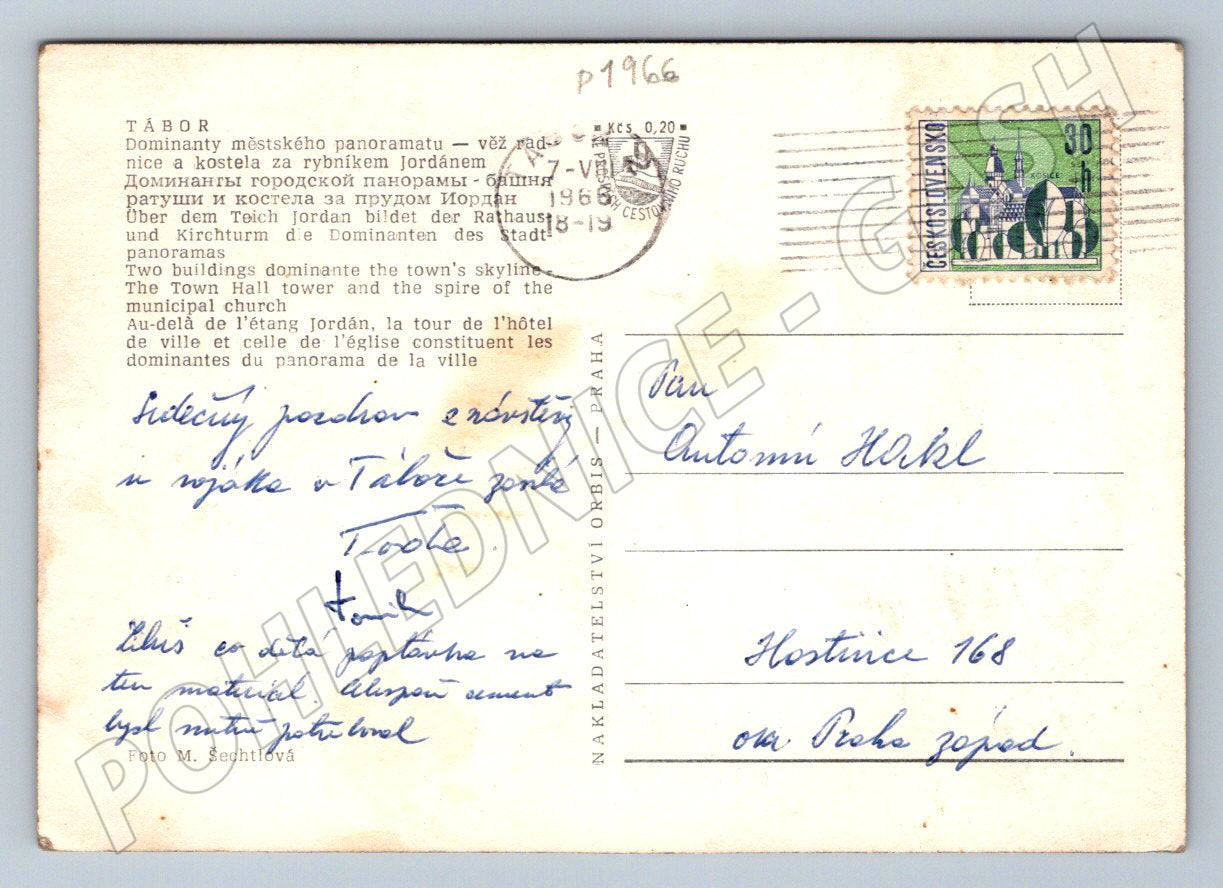 p1966
TÁBOR
Dominanty městského panoramatu — věž rad-
nice a kostela za rybníkem Jordánem
Доминанты городской панорамы - башня
ратуши и костела за прудом Иордан
Über dem Teich Jordan bildet der Rathaus-
und Kirchturm die Dominanten des Stadt-
panoramas
Two buildings dominate the town's skyline -
The Town Hall tower and the spire of the
municipal church
Au-delà de l'étang Jordán, la tour de l'hôtel
de ville et celle de l'église constituent les
dominantes du panorama de la ville
Kčs 0,20
CESTOVNÍHO RUCHU
7-VII
1966
18-19
ČESKOSLOVENSKO
30
h
KOŠICE
Srdečný pozdrav z návštěvy
u vojáka v Táboře
Tonik
co dělá poptávka na
ten materiál. cement
bysl nutně potřeboval
Foto M. Šechtlová
NAKLADATELSTVÍ ORBIS — PRAHA
Pan
Antonín HAkl
Hostivice 168
okr Praha západ.
POHLEDNICE - G